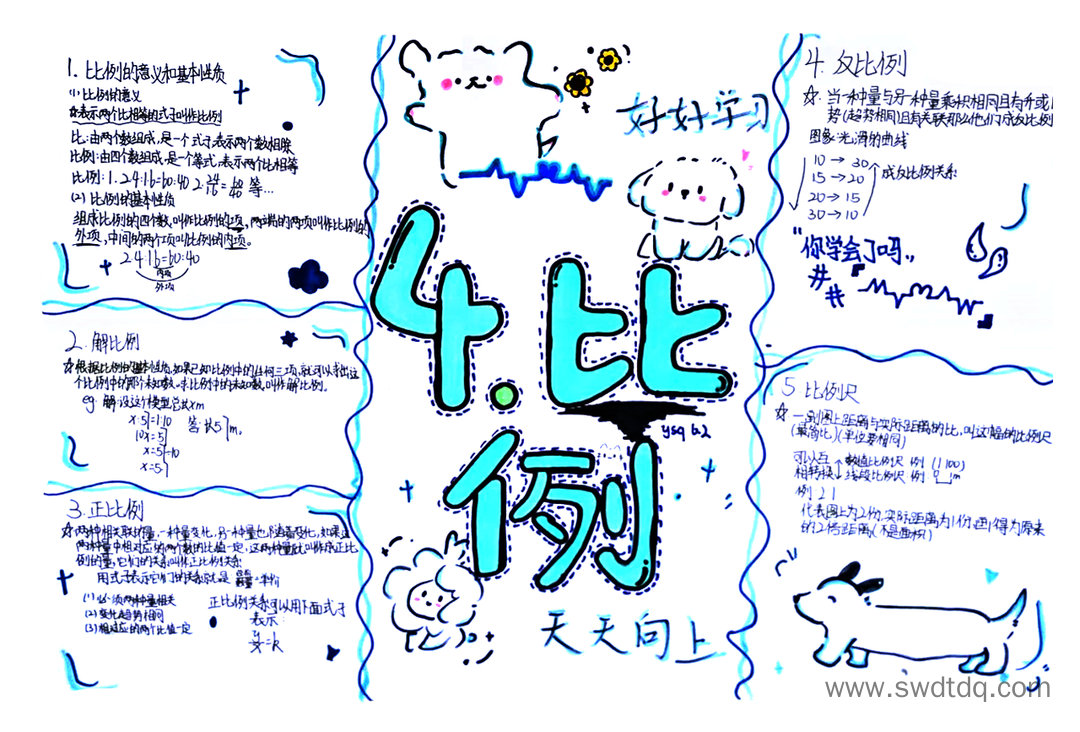 1. 比例的意义和基本性质
(1) 比例的意义
☆表示两个比相等的式子叫作比例
比:由两个数组成,是一个式子,表示两个数相除
比例:由四个数组成,是一个等式,表示两个比相等
比例:1. 2.4:1.6=60:40 2. 等…
(2) 比例的基本性质
组成比例的四个数,叫作比例的项,两端的两项叫作比例的
外项,中间的两个项叫比例的内项。
2.4:1.6=60:40
内项
外项
2. 解比例
☆根据比例的基本性质,如果已知比例中的任何三项,就可以求出这
个比例中的那个未知数。求比例中的未知数,叫作解比例。
eg: 解:设这个模型总长xm
3. 正比例
☆两种相关联的量,一种量变化,另一种量也随着变化,如果这
两种量中相对应的两个数的比值一定,这两种量就叫作成正比
例的量,它们的关系叫作正比例关系
用式子表示它们的关系就是 =单价
(1) 必须两种量相关
(2) 变化趋势相同
(3) 相对应的两个比值一定
正比例关系可以用下面式子
表示:
y/x=k
好好学习
4.比
例
ysq 6.2
天天向上
4. 反比例
☆. 当一种量与另一种量乘积相同且有升或
势(趋势相同)且有关联那么他们成反比例
图象:光滑的曲线
10 → 30
15 → 20
20 → 15
30 → 10
成反比例关系
"你学会了吗"
5 比例尺
☆ 一副图上距离与实际距离的比,叫这幅的比例尺
(最简比)(单位要相同)
可以互 数值比例尺 例 (1:100)
相转换 线段比例尺 例 0 1m
例 2:1
代表图上为2份,实际距离为1份,画得为原来
的2倍距离(不是面积)
www.swdtdq.com